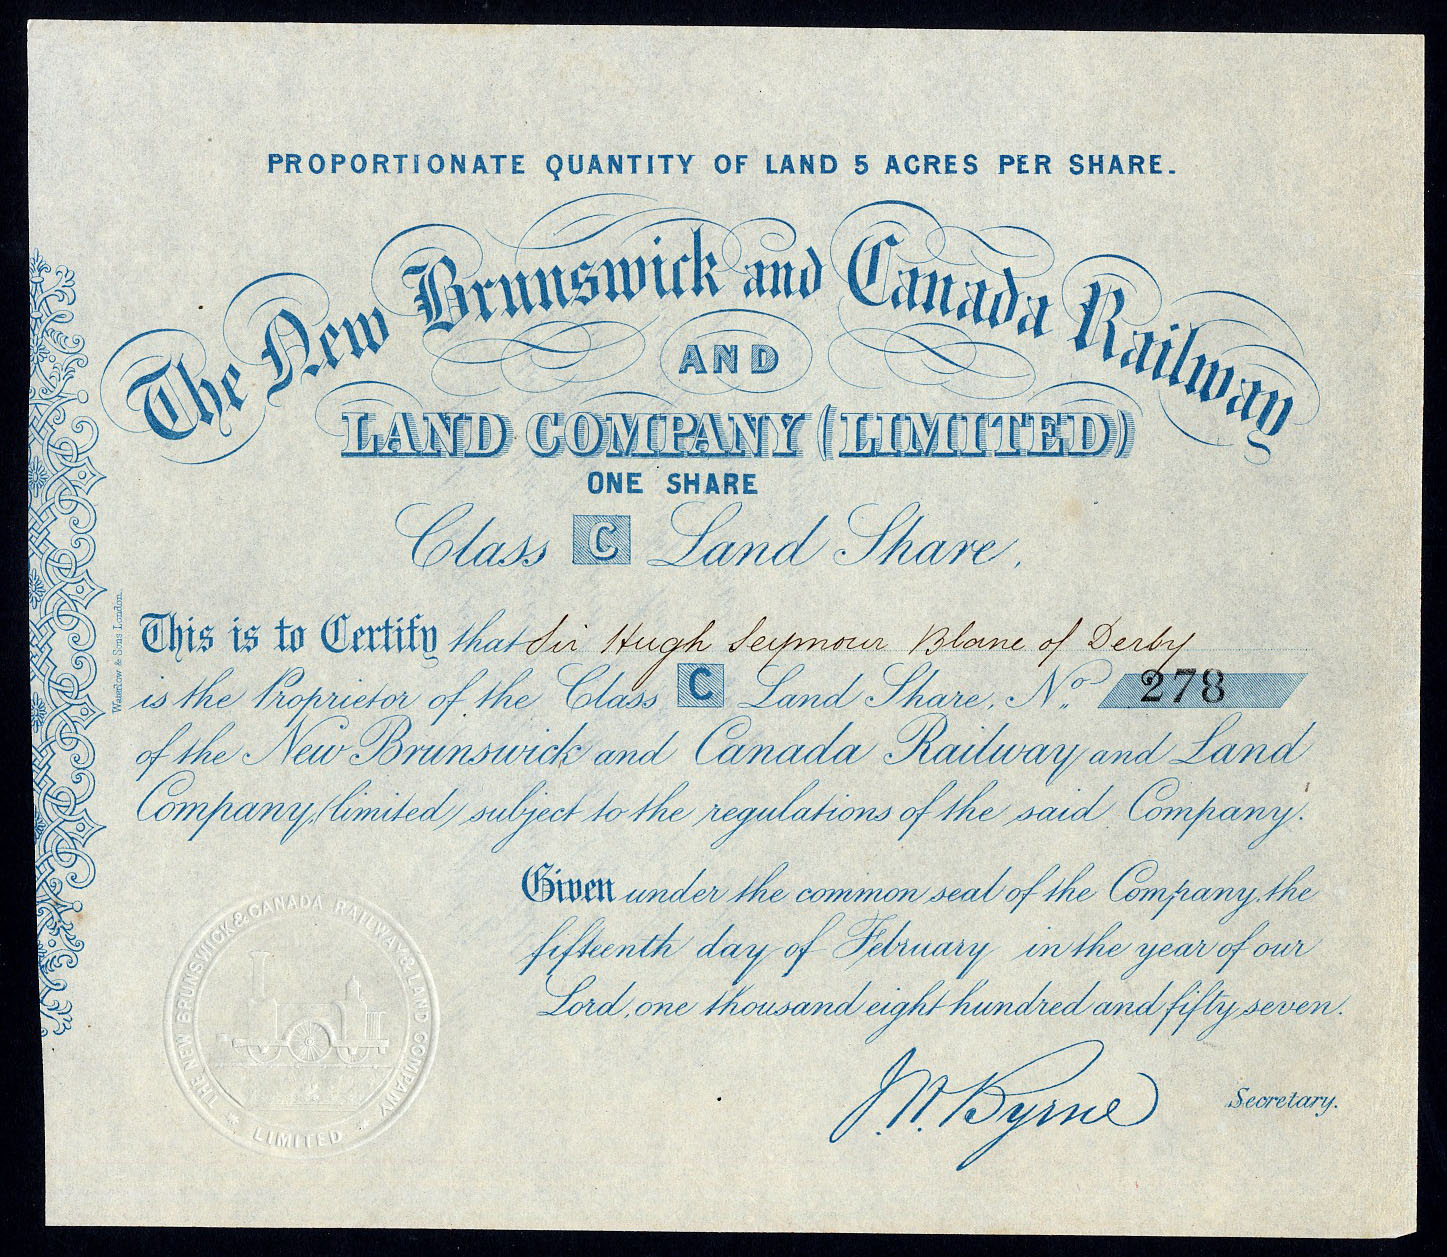 PROPORTIONATE QUANTITY OF LAND 5 ACRES PER SHARE.
The New Brunswick and Canada Railway
AND
LAND COMPANY (LIMITED)
ONE SHARE
Class C Land Share.
This is to Certify that Sir Hugh Seymour Blane of Derby
is the Proprietor of the Class C Land Share, No. 278
of the New Brunswick and Canada Railway and Land
Company, (limited) subject to the regulations of the said Company.
Given under the common seal of the Company, the
fifteenth day of February in the year of our
Lord, one thousand eight hundred and fifty seven.
J.W. Byrne Secretary.
Waterlow & Sons London.
THE NEW BRUNSWICK & CANADA RAILWAY & LAND COMPANY
LIMITED